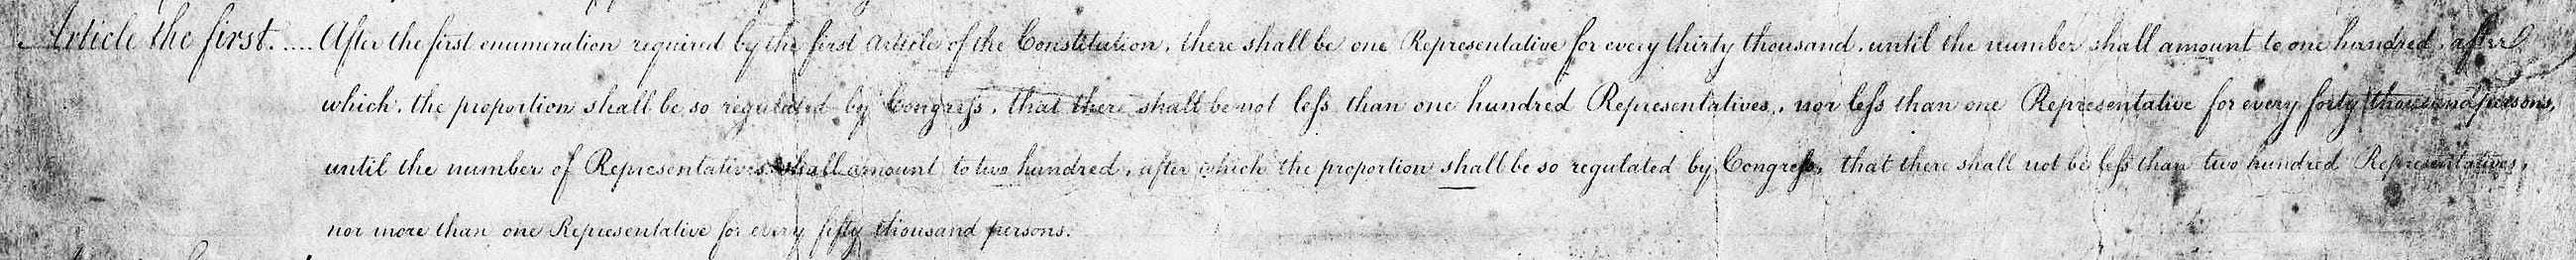 Article the first..... After the first enumeration required by the first article of the Constitution, there shall be one Representative for every thirty thousand, until the number shall amount to one hundred, after
which, the proportion shall be so regulated by Congress, that there shall be not less than one hundred Representatives, nor less than one Representative for every forty thousand persons,
until the number of Representatives shall amount to two hundred, after which the proportion shall be so regulated by Congress, that there shall not be less than two hundred Representatives,
nor more than one Representative for every fifty thousand persons.